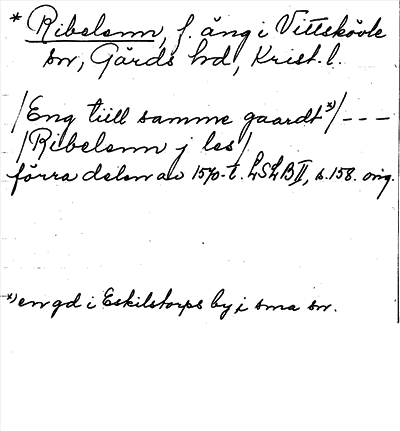 * Ribelsnn, f. äng i Vittskövle
sn, Gärds hd, Krist. l.
/Eng tiill samme gaardt *)/---
/Ribelsnn j les/
förra delen av 1570-t. LSLB II, s. 158. orig.
*) en gd i Eskilstorps by i sma sn.